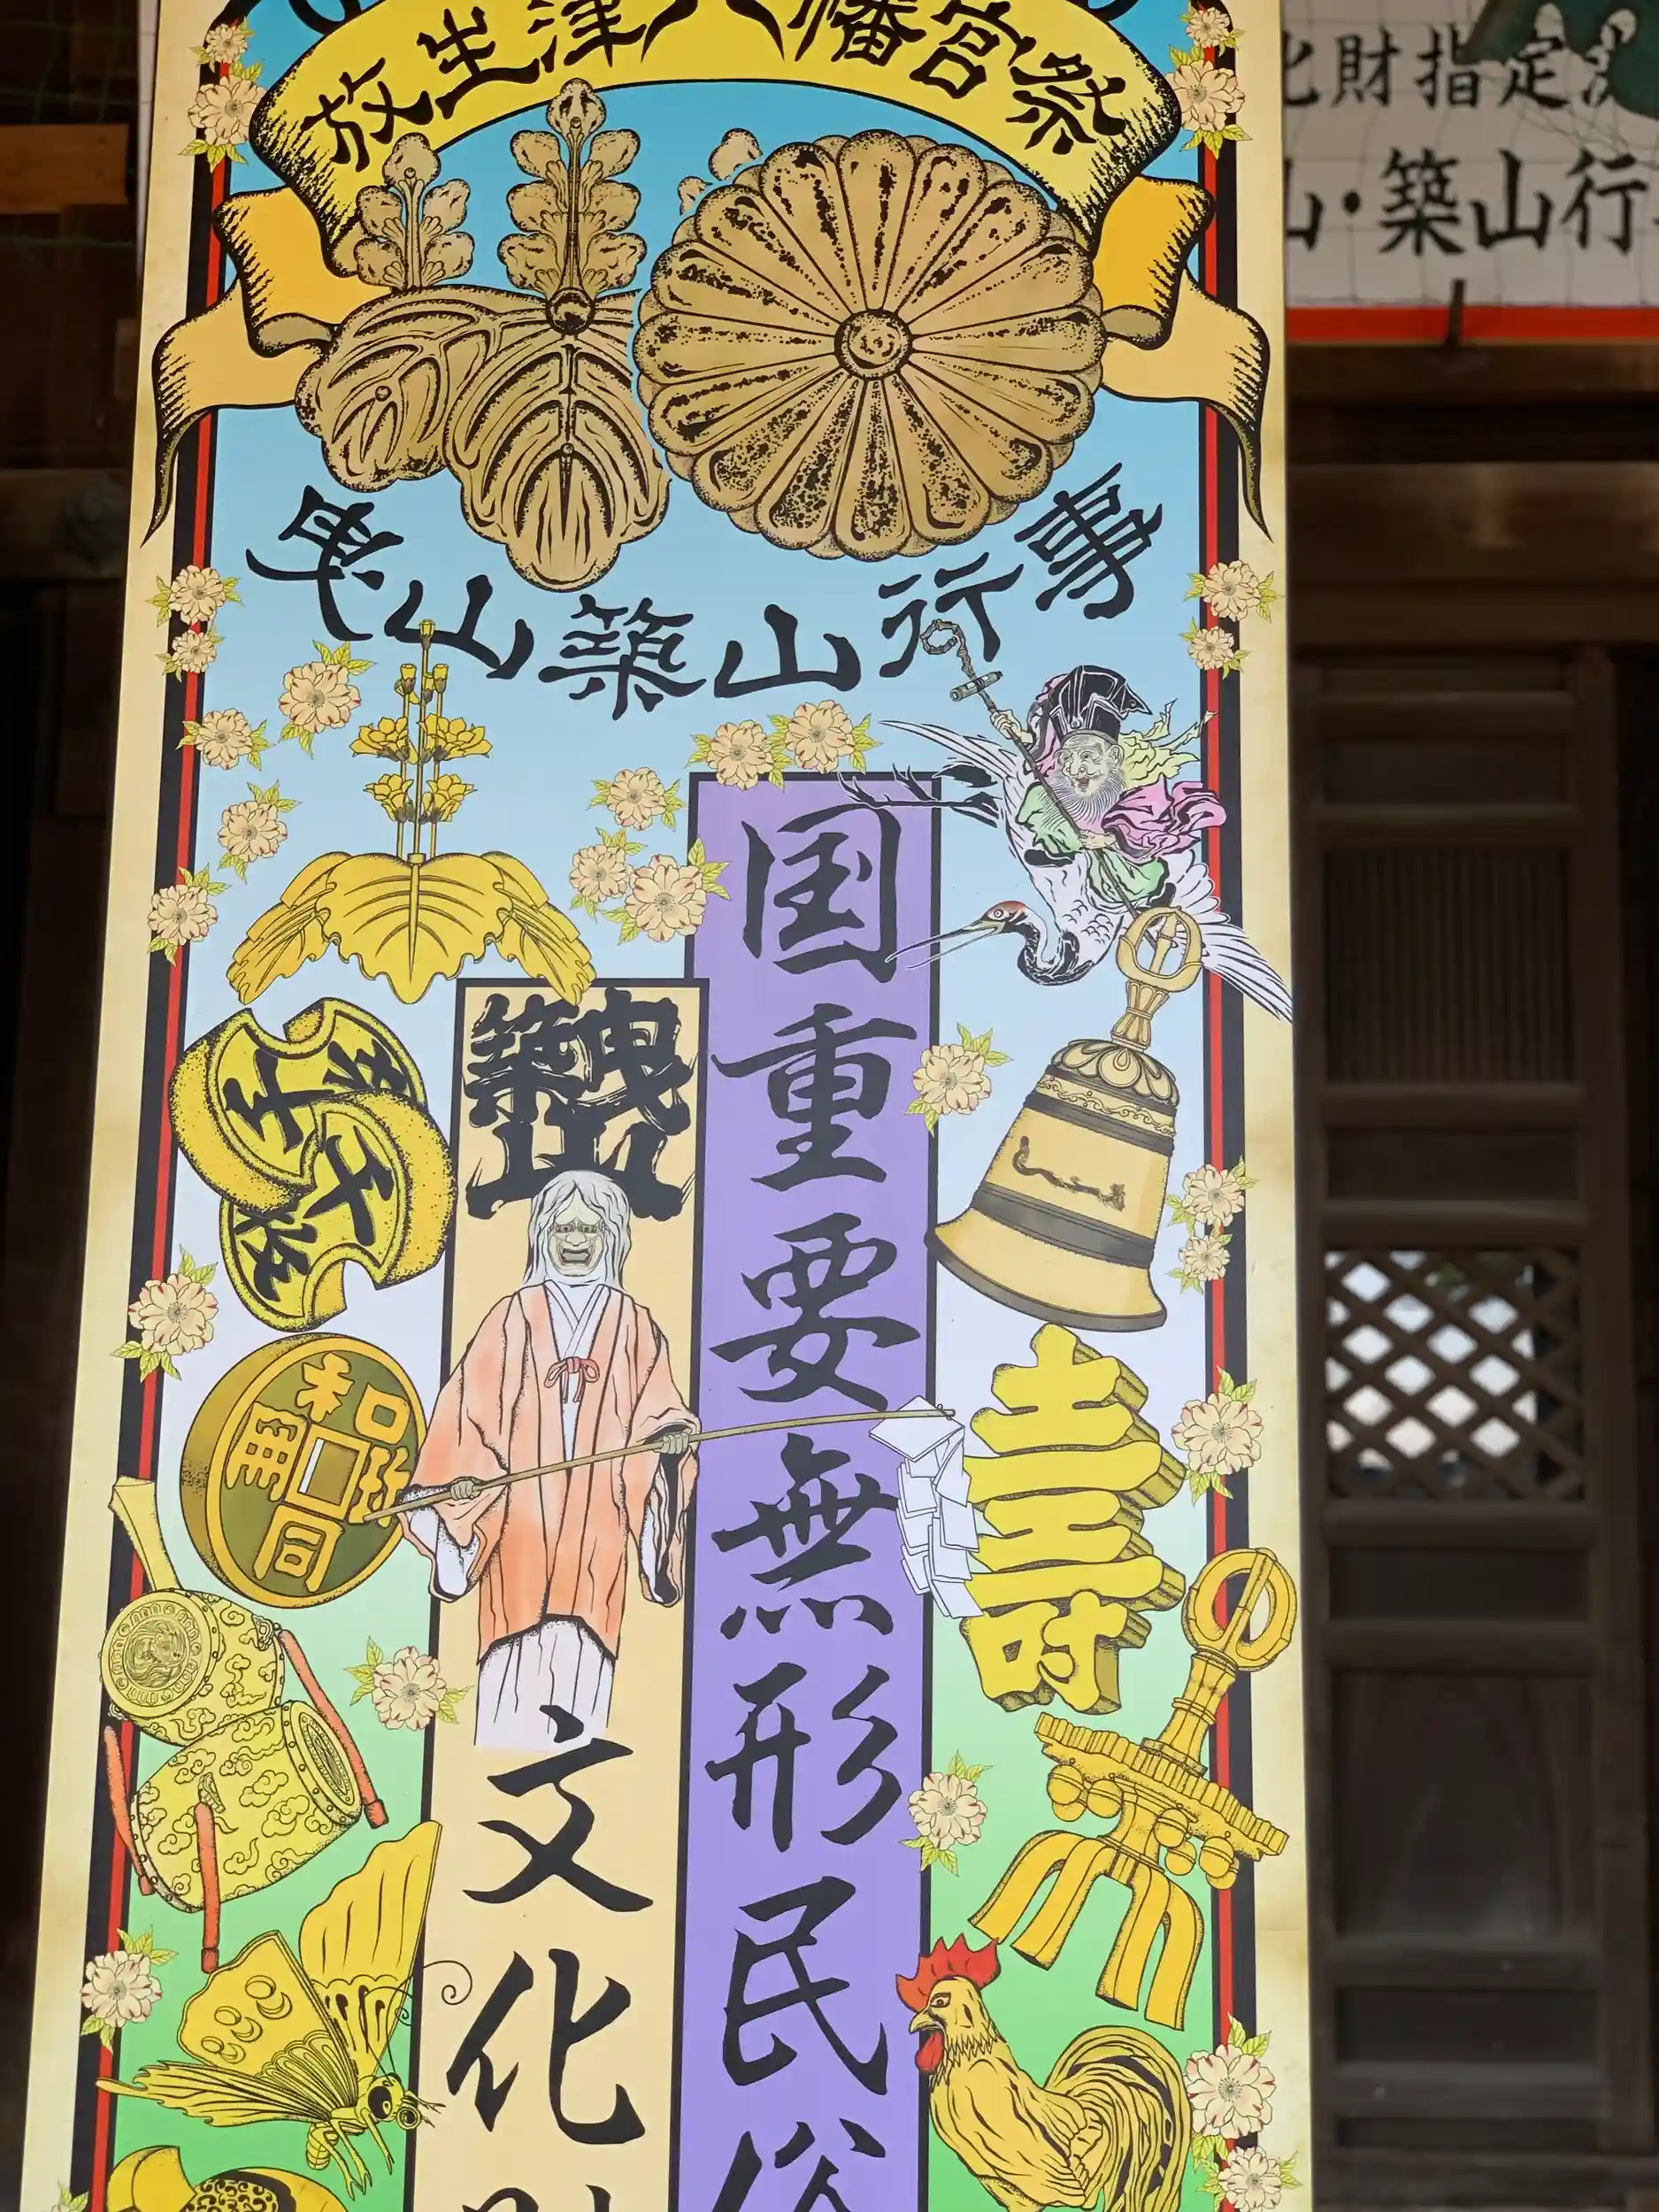 放生津八幡宮祭
曳山築山行事
国重要無形民俗
築曳山
文化財
千
和同
開
寿
化財指定
山・築山行